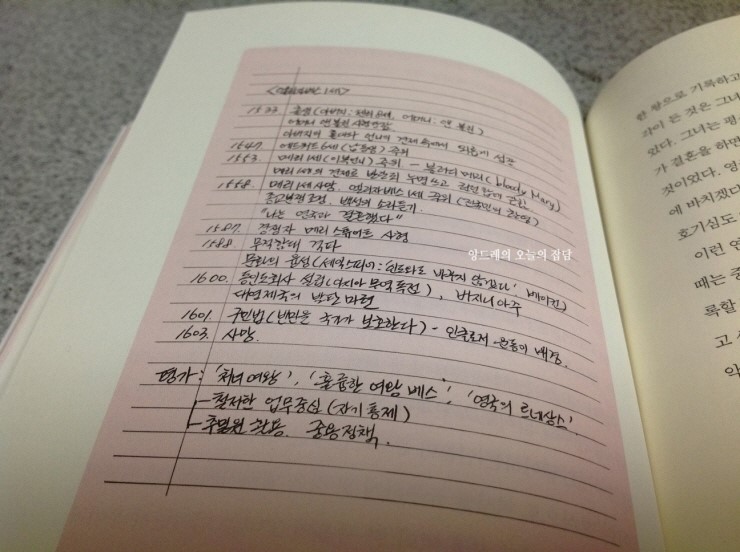 <엘리자베스 1세>
1533. 출생 (아버지: 헨리 8세, 어머니: 앤 불린)
어머니 앤 불린 사형당함
아버지의 홀대와 언니의 견제 속에서 외롭게 성장
1547. 에드워드 6세 (남동생) 즉위
1553. 메리 1세 (이복언니) 즉위 - 블러디 메리 (bloody Mary)
메리 1세의 견제로 반란의 누명 쓰고 런던탑에 군금
1558. 메리 1세 사망. 엘리자베스 1세 즉위 (전국민의 환영)
중교분쟁 조정, 백성의 소리듣기.
"나는 영국과 결혼했다"
1587. 경쟁자 메리 스튜어트 사형
1588 무적함대 격파
문화의 융성 (셰익스피어: '인도와도 바꾸지 않겠다' 베이컨)
1600. 동인도회사 설립 (아시아 무역 독점), 버지니아주
대영제국의 발달 마련
1601. 구빈법 (빈민을 국가가 보호한다) - 인클로저 운동이 배경.
1603. 사망.
평가: '처녀 여왕', '훌륭한 여왕 베스', '영국의 르네상스'.
- 철저한 업무중심 (자기 통제)
- 추밀원 활용. 중용정책.
앙드레의 오늘의 잡담
한 왕으로 기록하고
좌이 든 것은 그녀
었다. 그녀는 평
가 결혼을 하면
것이었다. 영
에 바치겠다
호기심도
이런 영
때는 중
록할
고 싶
약